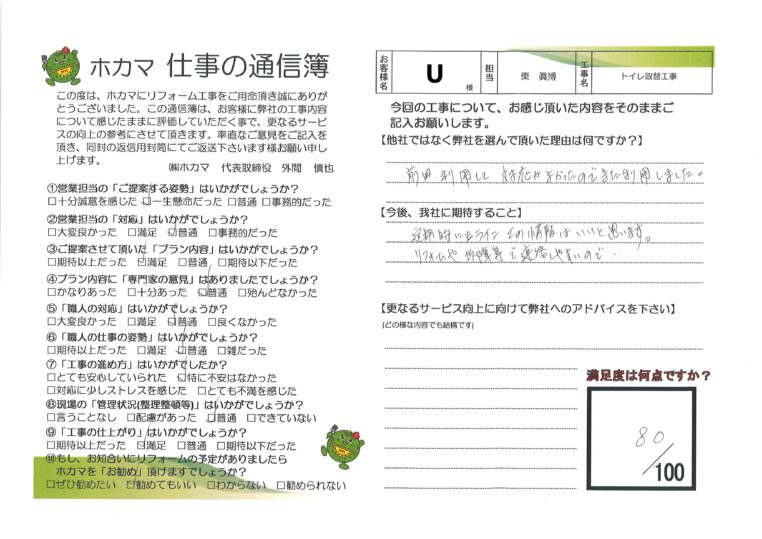 ホカマ 仕事の通信簿
この度は、ホカマにリフォーム工事をご用命頂き誠にありが
とうございました。この通信簿は、お客様に弊社の工事内容
について感じたままに評価していただく事で、更なるサービ
スの向上の参考にさせて頂きます。率直なご意見をご記入を
頂き、同封の返信用封筒にてご返送下さいます様お願い申し
上げます。
㈱ホカマ 代表取締役 外間 慎也
①営業担当の「ご提案する姿勢」はいかがでしょうか?
□十分誠意を感じた □一生懸命だった □普通 □事務的だった
②営業担当の「対応」はいかがでしょうか?
□大変良かった □満足 □普通 □事務的だった
③ご提案させて頂いた「プラン内容」はいかがでしょうか?
□期待以上だった □満足 □普通 □期待以下だった
④プラン内容に「専門家の意見」はありましたでしょうか?
□かなりあった □十分あった □普通 □殆んどなかった
⑤「職人の対応」はいかがでしょうか?
□大変良かった □満足 □普通 □良くなかった
⑥「職人の仕事の姿勢」はいかがでしょうか?
□期待以上だった □満足 □普通 □雑だった
⑦「工事の進め方」はいかがでしたか?
□とても安心していられた □特に不安はなかった
□対応に少しストレスを感じた □とても不満を感じた
⑧現場の「管理状況(整理整頓等)」はいかがでしょうか?
□言うことなし □配慮があった □普通 □できていない
⑨「工事の仕上がり」はいかがでしょうか?
□期待以上だった □満足 □普通 □期待以下だった
⑩もし、お知合いにリフォームの予定がありましたら
ホカマを「お勧め」頂けますでしょうか?
□ぜひ勧めたい □勧めてもいい □わからない □勧められない
お客様名 U 様 担当 東 眞博 工事名 トイレ取替工事
今回の工事について、お感じ頂いた内容をそのままご
記入お願いします。
【他社ではなく弊社を選んで頂いた理由は何ですか?】
前回利用して 対応がよかったのでまた利用しました。
【今後、我社に期待すること】
定期的にライン での情報はいいと思います。
リフォームや 故障等で連絡しやすいので…
【更なるサービス向上に向けて弊社へのアドバイスを下さい】
(どの様な内容でも結構です)
満足度は何点ですか?
80
/100